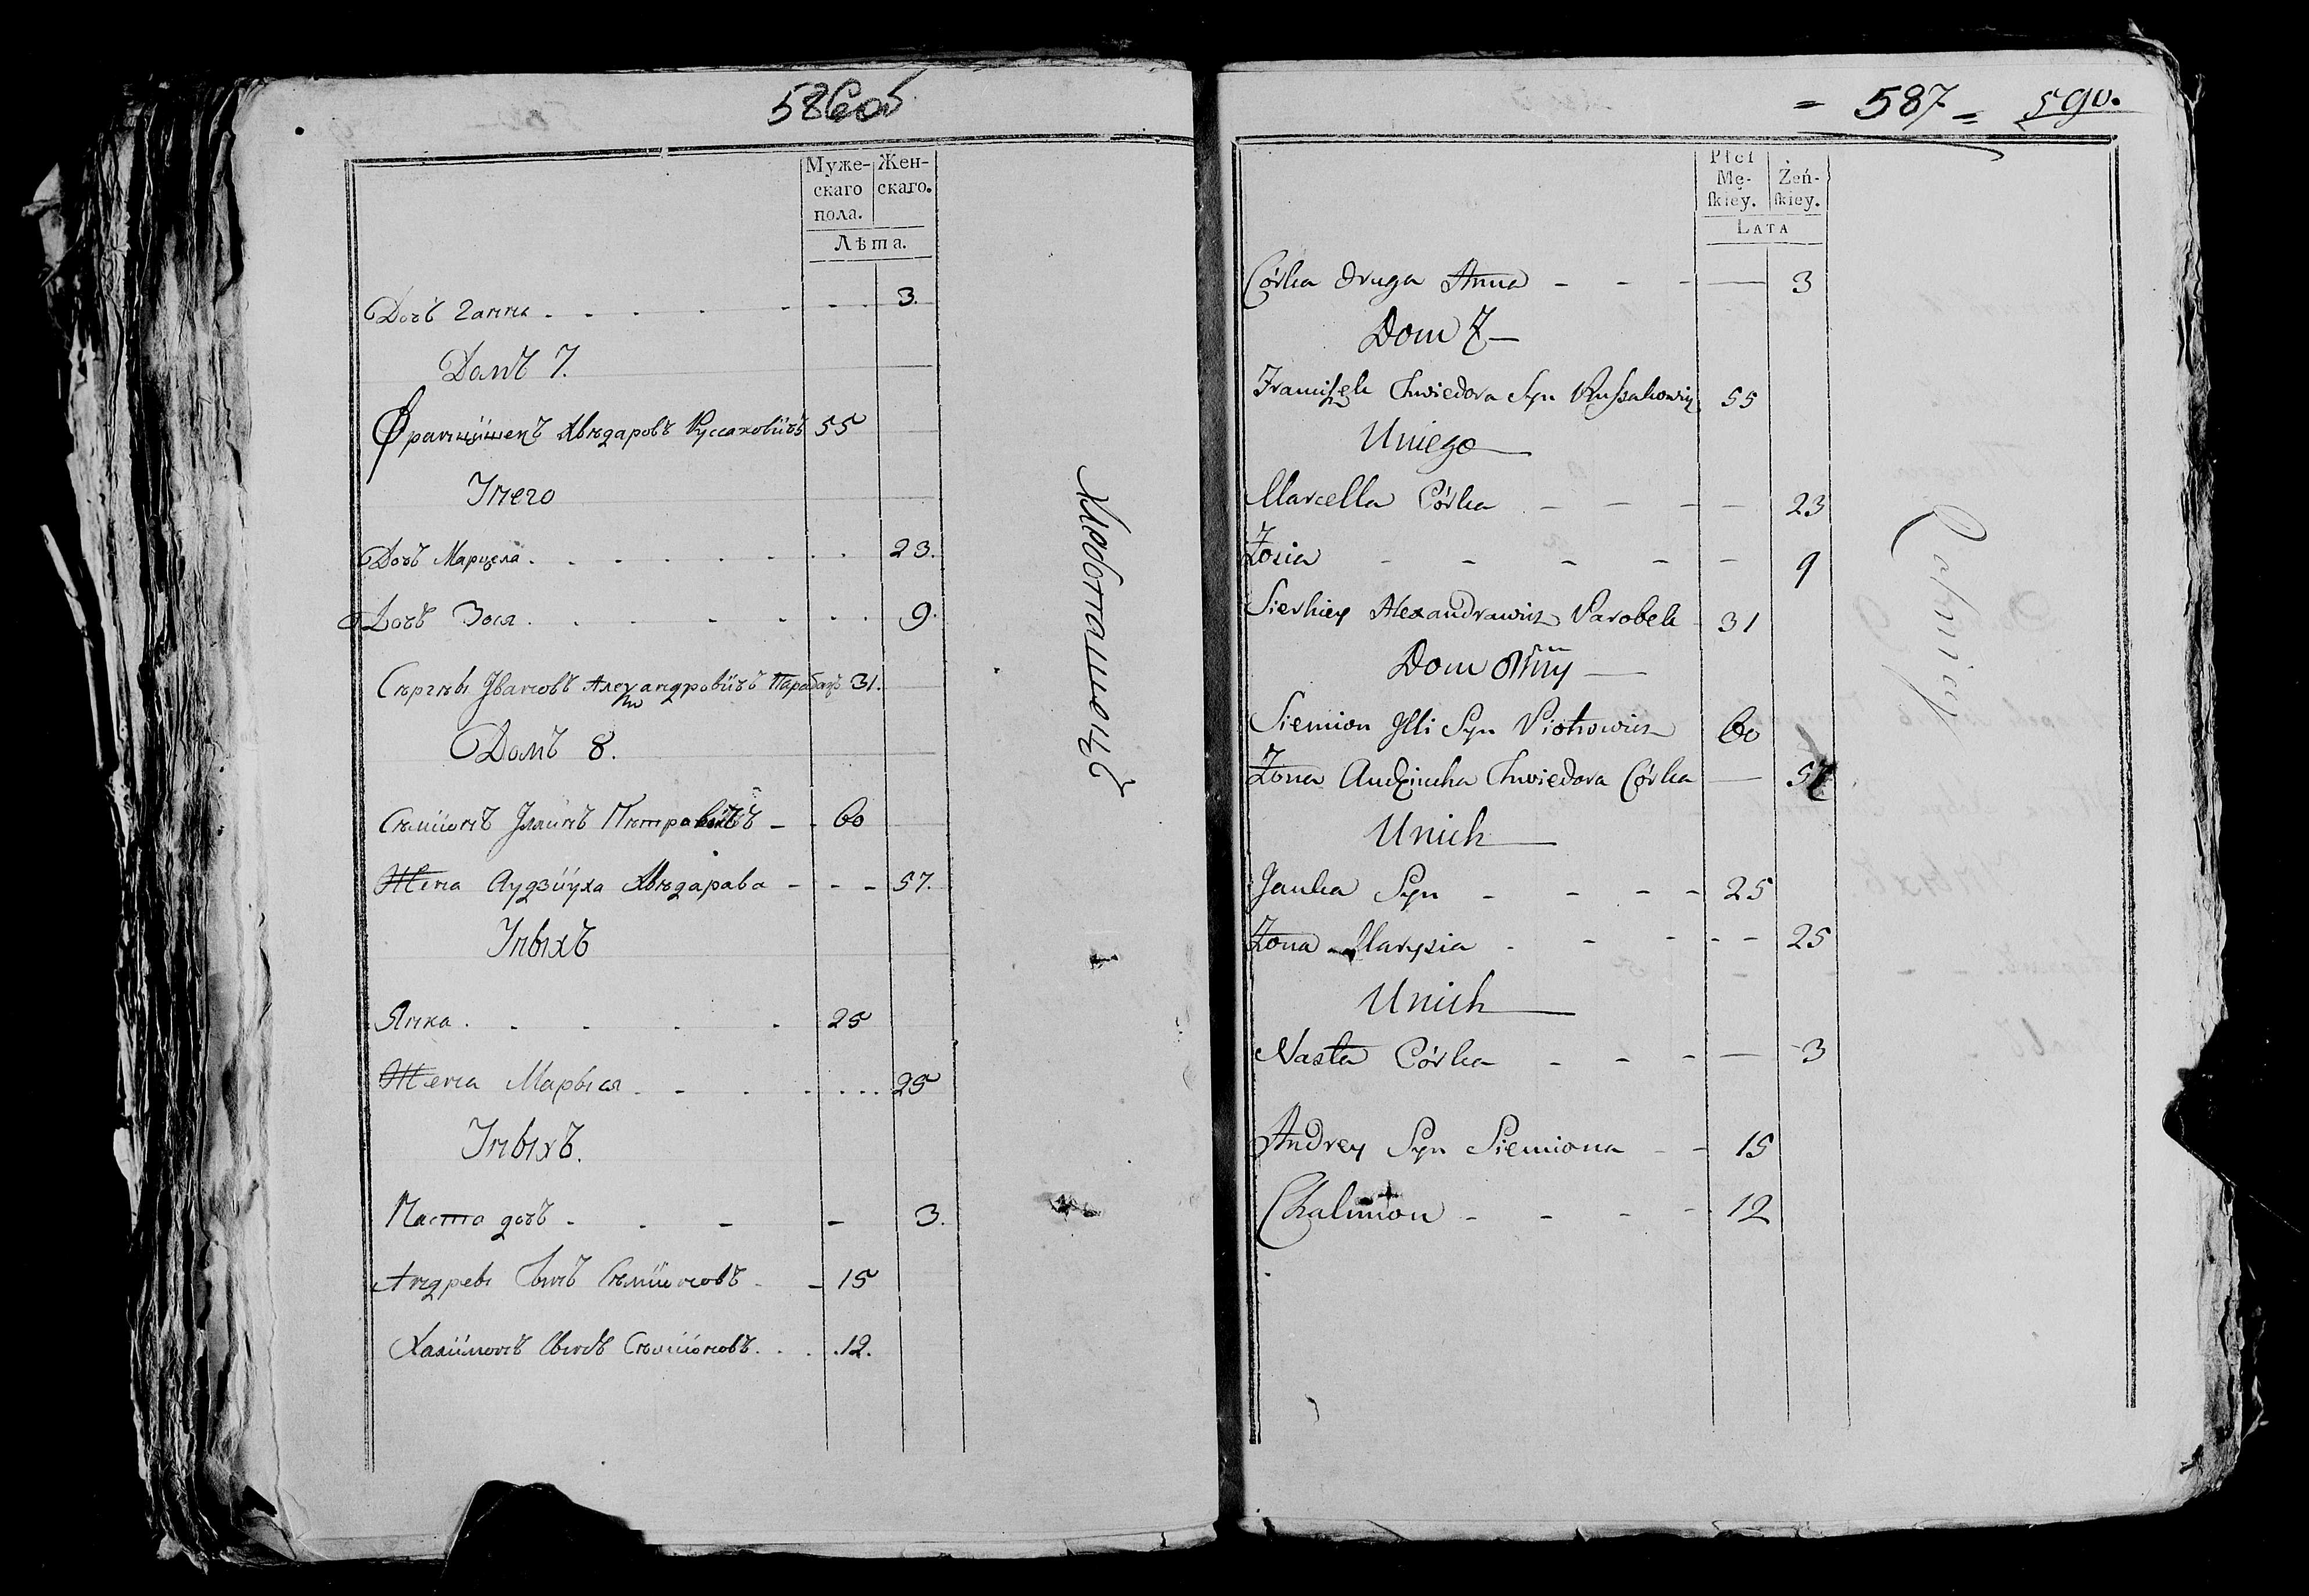 586 об
Муже- Жен-
скаго скаго.
пола.
Лѣта.
Дочъ Ганна . . . . . - . . 3.
Домъ 7.
Францишекъ Хвѣдаровъ Руссаковичъ 55
Унего
Дочъ Марцела . . . . . . . . 23.
Дочъ Зося . . . . . . . . 9.
Сѣргѣы Ивановъ Александровичъ Парабакъ 31.
Домъ 8.
Сѣмионъ Илиинъ Пѣтравичъ - - 60
Жена Аудзиуха Хвѣдарава - - - 57.
Уныхъ
Янка . . . . . 25
Жена Марыся . . . . . . . 25
Уныхъ.
Наста дочъ . . - - 3.
Андреы Сынъ Сѣмионовъ . - 15
Халимонъ Сынъ Сѣмионовъ . . . 12.
= 587 = 590.
Płci
Mę- Żeń-
ſkiey. ſkiey.
LATA
Córka druga Anna - - - — 3
Dom 7 —
Franciszek Chwiedora Syn Russakowicz 55
Uniego
Marcella Córka - - - - 23
Zosia - - - - - 9
Sierhiey Alexandrawicz Parobek 31
Dom 8my —
Siemion Illi Syn Piotrowicz 60
Żona Audziucha Chwiedora Córka — 57
Unich
Janka Syn - - - - 25
Żona Marysia - - - - - 25
Unich
Nasta Córka - - - — 3
Andrey Syn Siemiona - - 15
Chalimon - - - - 12